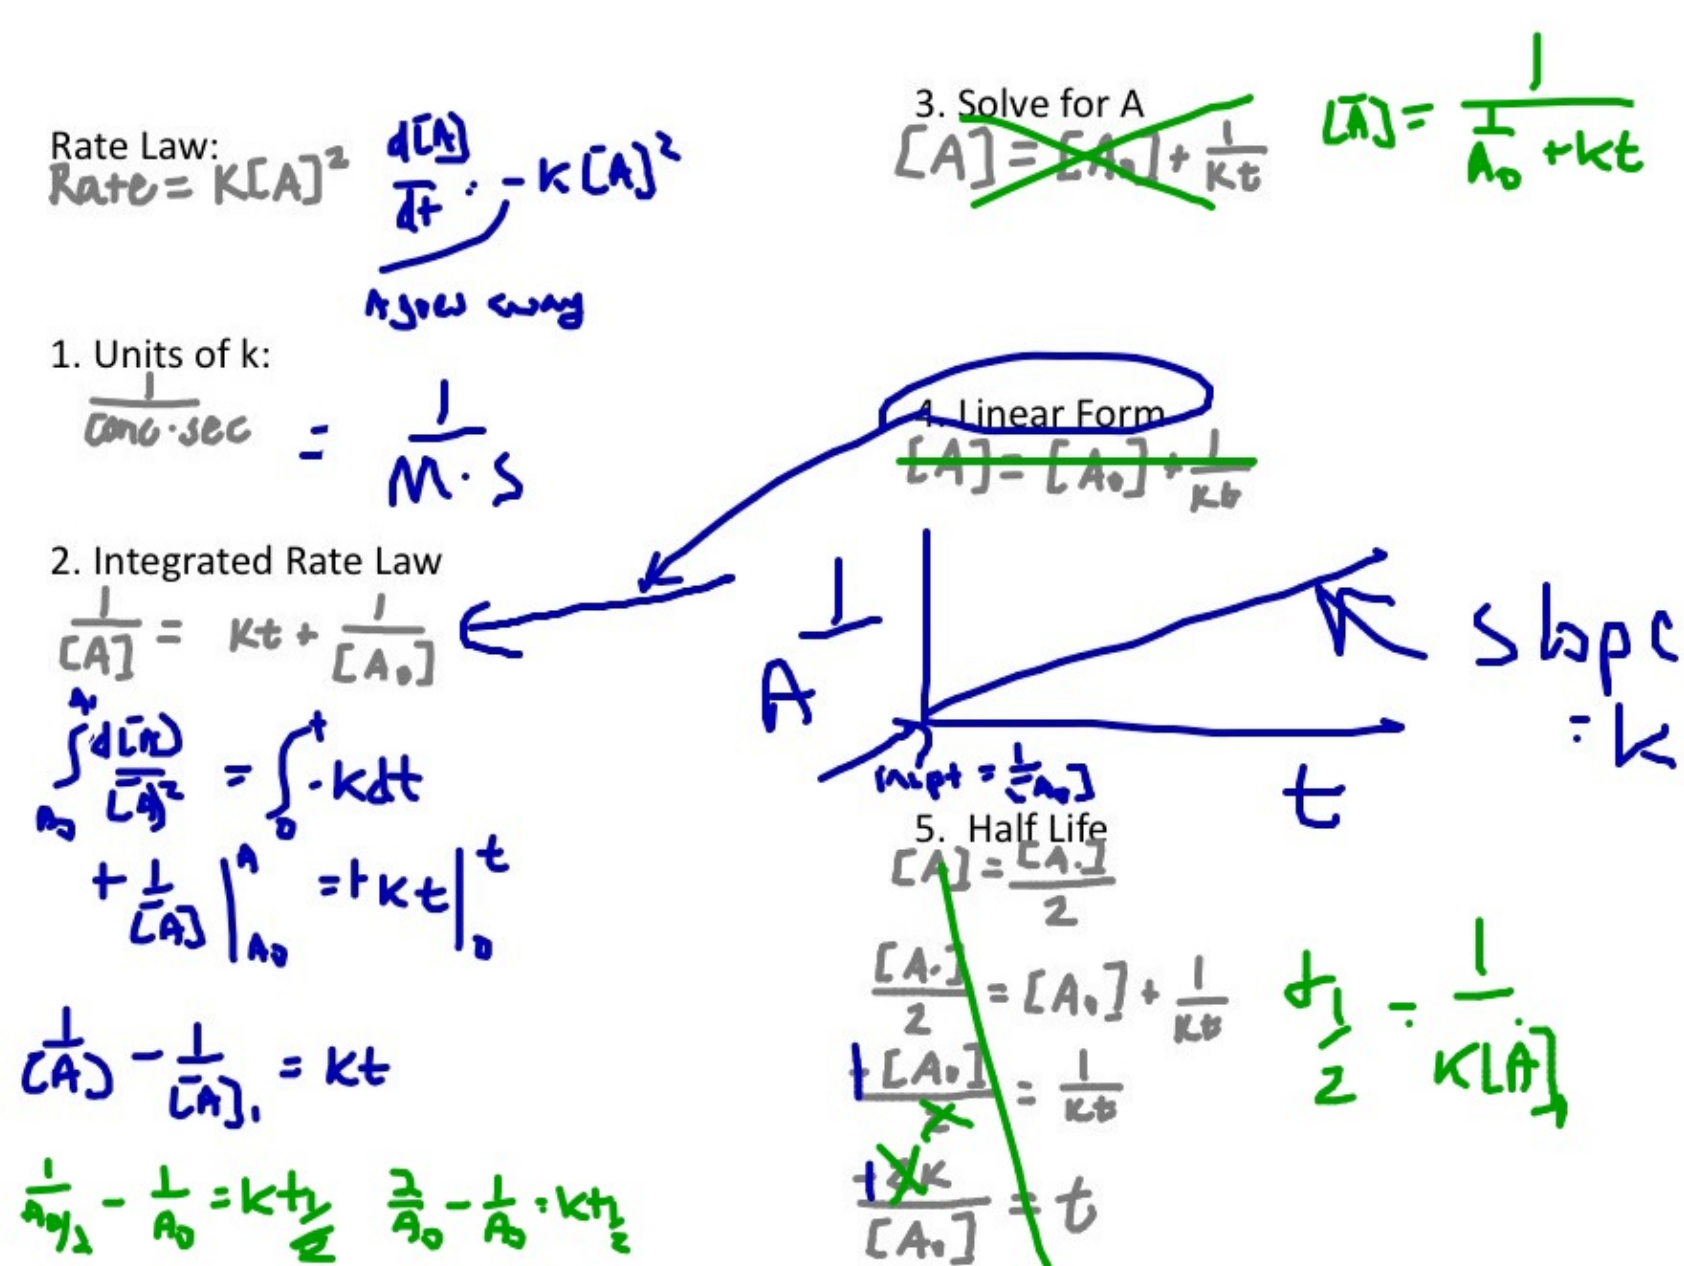 Rate Law:
Rate = K[A]²
d[A]/dt = -K[A]²
A goes away
1. Units of k:
1/(conc·sec) = 1/(M·S)
2. Integrated Rate Law
1/[A] = Kt + 1/[A₀]
∫ d[A]/[A]² = ∫ -kdt
+ 1/[A] |ᴬ_A₀ = + Kt |ᵗ₀
1/[A] - 1/[A]₁ = Kt
1/(A₀/2) - 1/A₀ = Kt½   2/A₀ - 1/A₀ = Kt½
3. Solve for A
[A] = [A₀] + 1/Kt
[A] = 1/(1/A₀ + kt)
4. Linear Form
[A] = [A₀] + 1/Kt
1/A
slope = k
t
intcpt = 1/[A₀]
5. Half Life
[A] = [A₀]/2
[A₀]/2 = [A₀] + 1/Kt
[A₀]/2 = 1/Kt
2K/[A₀] = t
t½ = 1/K[A]